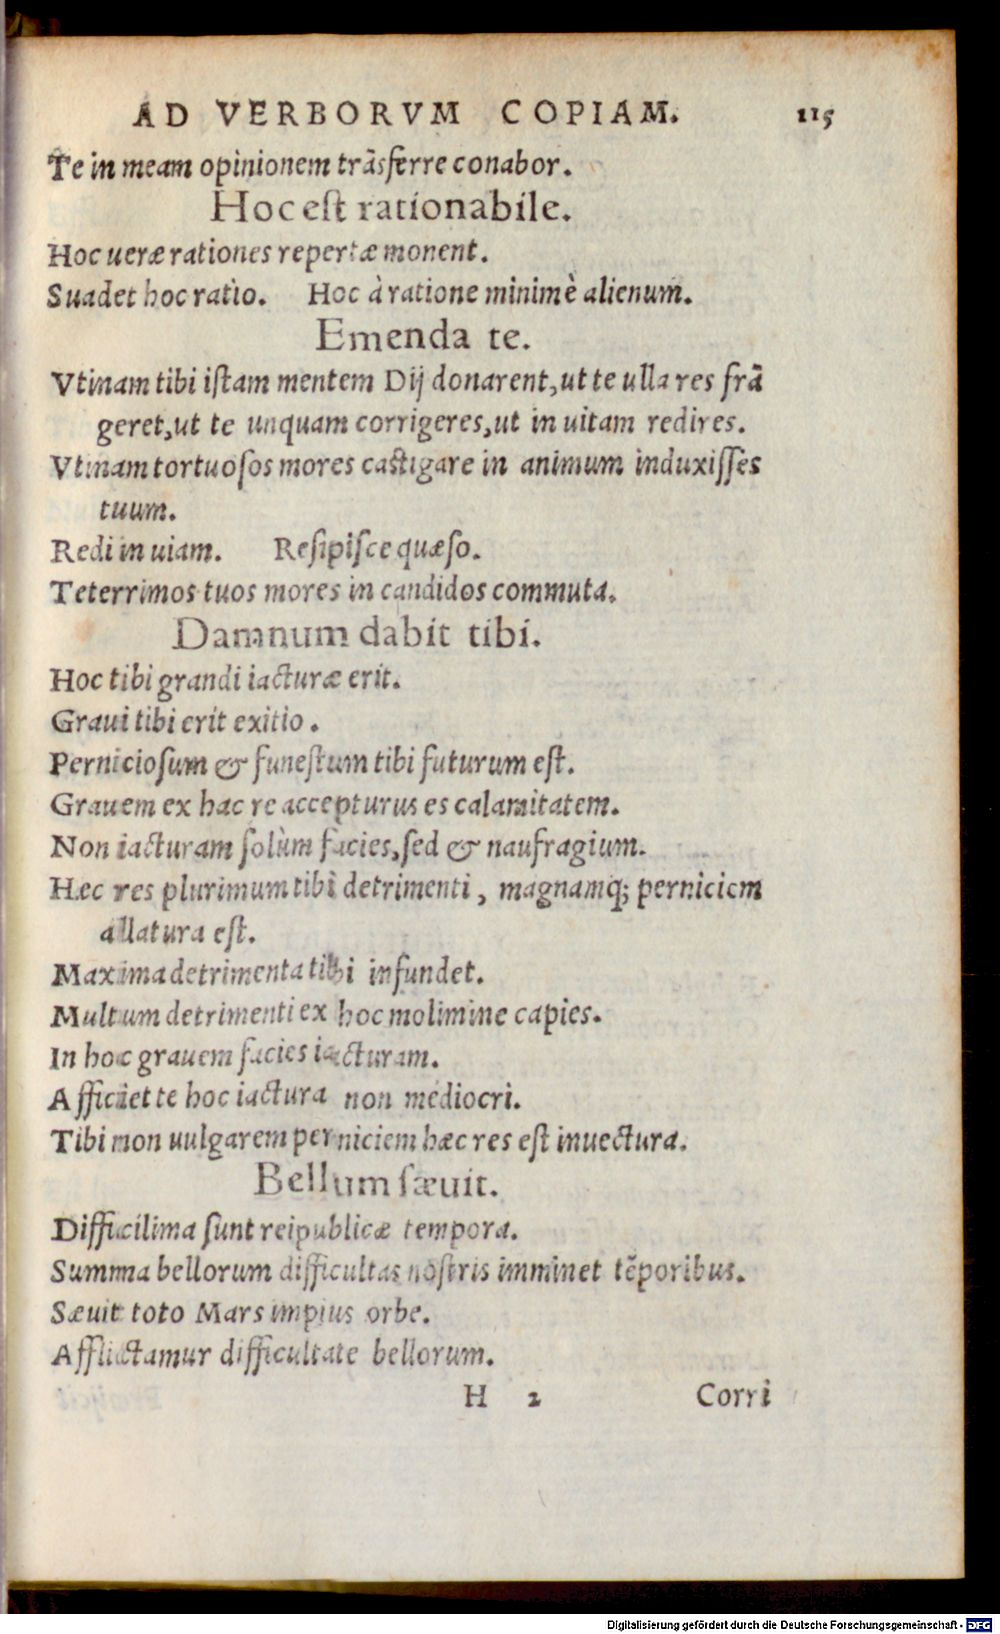 AD VERBORVM COPIAM. 115
Te in meam opinionem trãsferre conabor.
Hoc est rationabile.
Hoc ueræ rationes repertæ monent.
Suadet hoc ratio. Hoc à ratione minimè alienum.
Emenda te.
Vtinam tibi istam mentem Dij donarent, ut te ulla res frã
geret, ut te unquam corrigeres, ut in uitam redires.
Vtinam tortuosos mores castigare in animum induxisses
tuum.
Redi in uiam. Resipisce quæso.
Teterrimos tuos mores in candidos commuta.
Damnum dabit tibi.
Hoc tibi grandi iacturæ erit.
Graui tibi erit exitio.
Perniciosum & funestum tibi futurum est.
Grauem ex hac re accepturus es calamitatem.
Non iacturam solùm facies, sed & naufragium.
Hæc res plurimum tibi detrimenti, magnamq; perniciem
allatura est.
Maxima detrimenta tibi infundet.
Multum detrimenti ex hoc molimine capies.
In hoc grauem facies iacturam.
Afficiet te hoc iactura non mediocri.
Tibi non uulgarem perniciem hæc res est inuectura.
Bellum sæuit.
Difficilima sunt reipublicæ tempora.
Summa bellorum difficultas nostris imminet tẽporibus.
Sæuit toto Mars impius orbe.
Afflictamur difficultate bellorum.
H 2 Corri
Digitalisierung gefördert durch die Deutsche Forschungsgemeinschaft - DFG